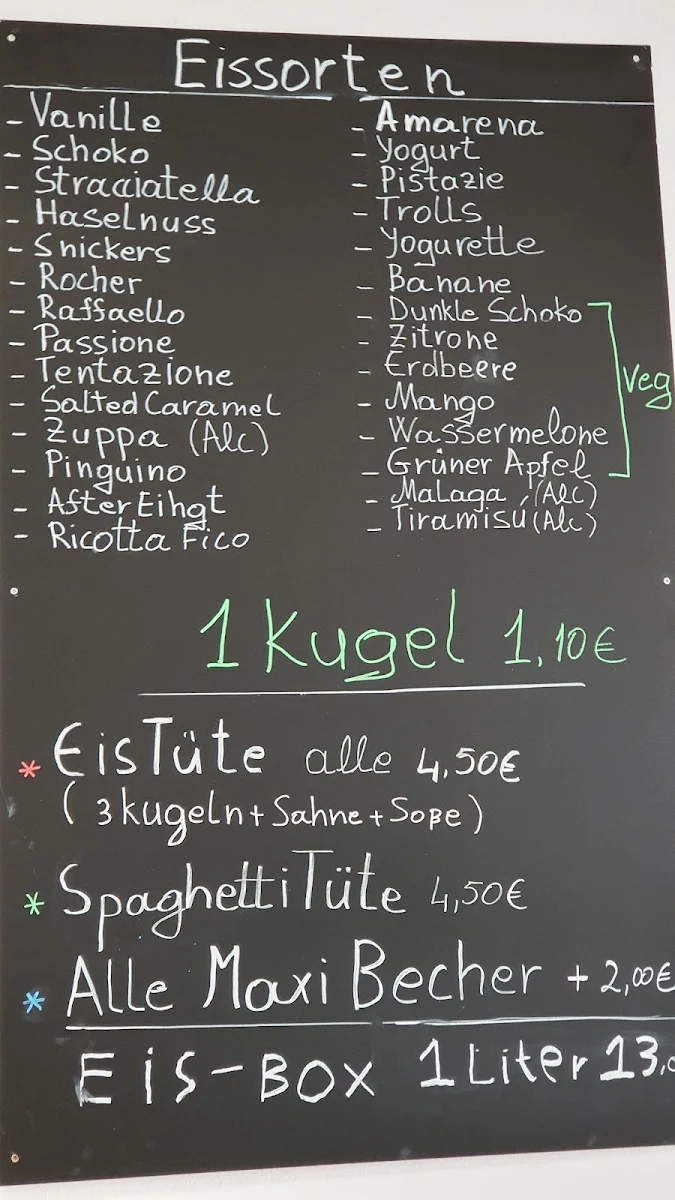 Eissorten
- Vanille
- Schoko
- Stracciatella
- Haselnuss
- Snickers
- Rocher
- Raffaello
- Passione
- Tentazione
- Salted Caramel
- Zuppa (Alc)
- Pinguino
- After Eihgt
- Ricotta Fico
- Amarena
- Yogurt
- Pistazie
- Trolls
- Yogurette
- Banane
- Dunkle Schoko
- Zitrone
- Erdbeere
- Mango
- Wassermelone
- Grüner Apfel
Veg
- Malaga (Alc)
- Tiramisú (Alc)
1 Kugel 1,10€
* EisTüte alle 4,50€
(3 kugeln + Sahne + Soße)
* SpaghettiTüte 4,50€
* Alle Maxi Becher + 2,00€
Eis-BOX 1 Liter 13,